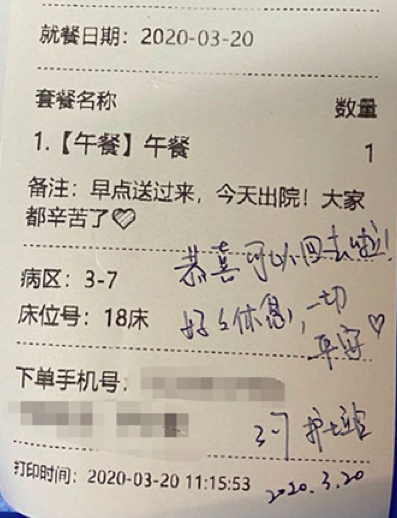 就餐日期：2020-03-20
套餐名称 数量
1.【午餐】午餐 1
备注：早点送过来，今天出院！大家
都辛苦了♡
恭喜可以回去啦！
病区：3-7
床位号：18床
好好休息，一切
平安♡
下单手机号：
3-7 护士站
2020.3.20
打印时间：2020-03-20 11:15:53